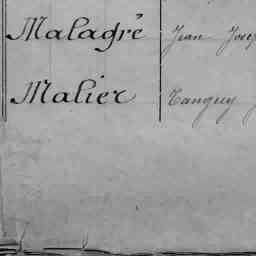 Malagré Jean
Malier Tanguy